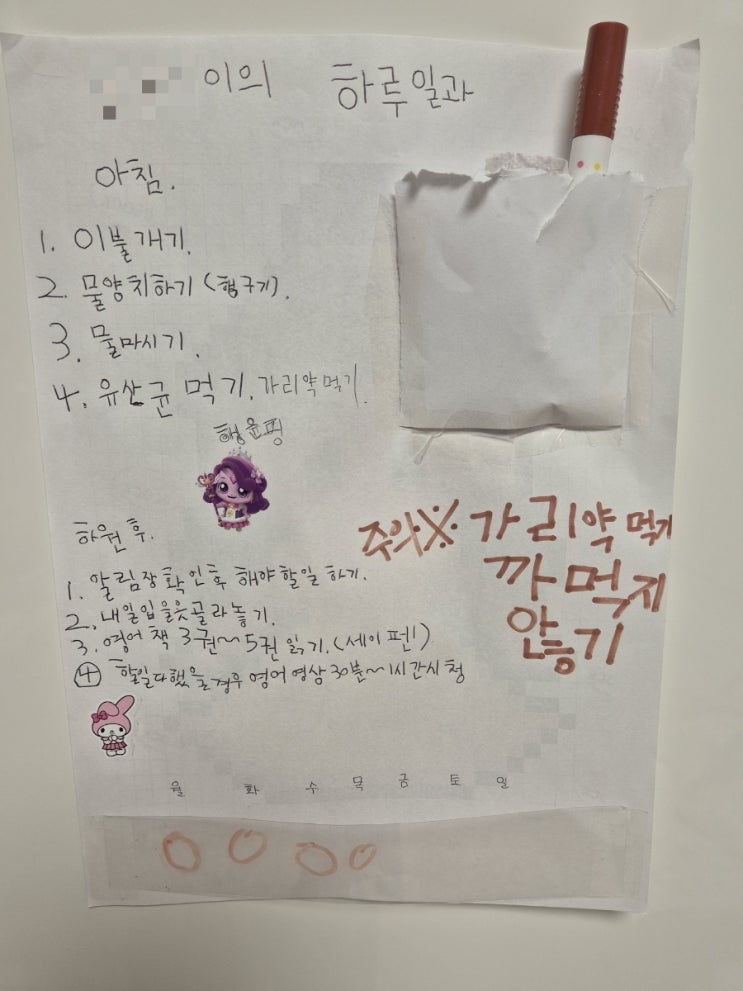 이의 하루일과
아침.
1. 이불개기.
2. 물양치하기(헹구기).
3. 물마시기.
4. 유산균 먹기. 가리약먹기.
행운핑
하원 후.
1. 알림장확인후 해야할일 하기.
2. 내일입을옷골라놓기.
3. 영어 책 3권~5권 읽기.(세이펜!)
④ 할일다했을경우 영어 영상 30분~1시간시청
주의※ 가리약 먹기
까먹지
안능기
월 화 수 목 금 토 일